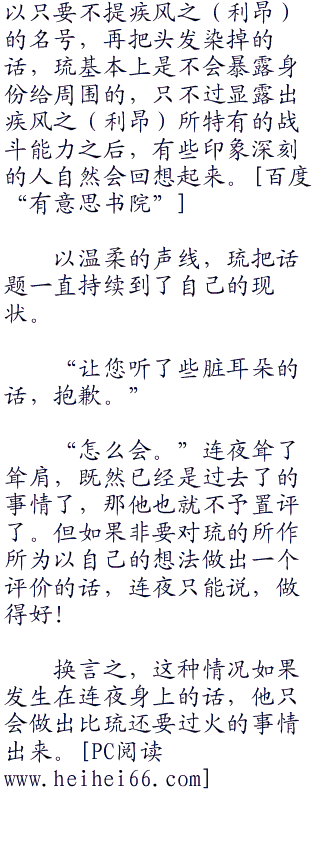 以只要不提疾风之（利昂）
的名号，再把头发染掉的
话，琉基本上是不会暴露身
份给周围的，只不过显露出
疾风之（利昂）所特有的战
斗能力之后，有些印象深刻
的人自然会回想起来。[百度
“有意思书院”]
以温柔的声线，琉把话
题一直持续到了自己的现
状。
“让您听了些脏耳朵的
话，抱歉。”
“怎么会。”连夜耸了
耸肩，既然已经是过去了的
事情了，那他也就不予置评
了。但如果非要对琉的所作
所为以自己的想法做出一个
评价的话，连夜只能说，做
得好！
换言之，这种情况如果
发生在连夜身上的话，他只
会做出比琉还要过火的事情
出来。[PC阅读
www.heihei66.com]